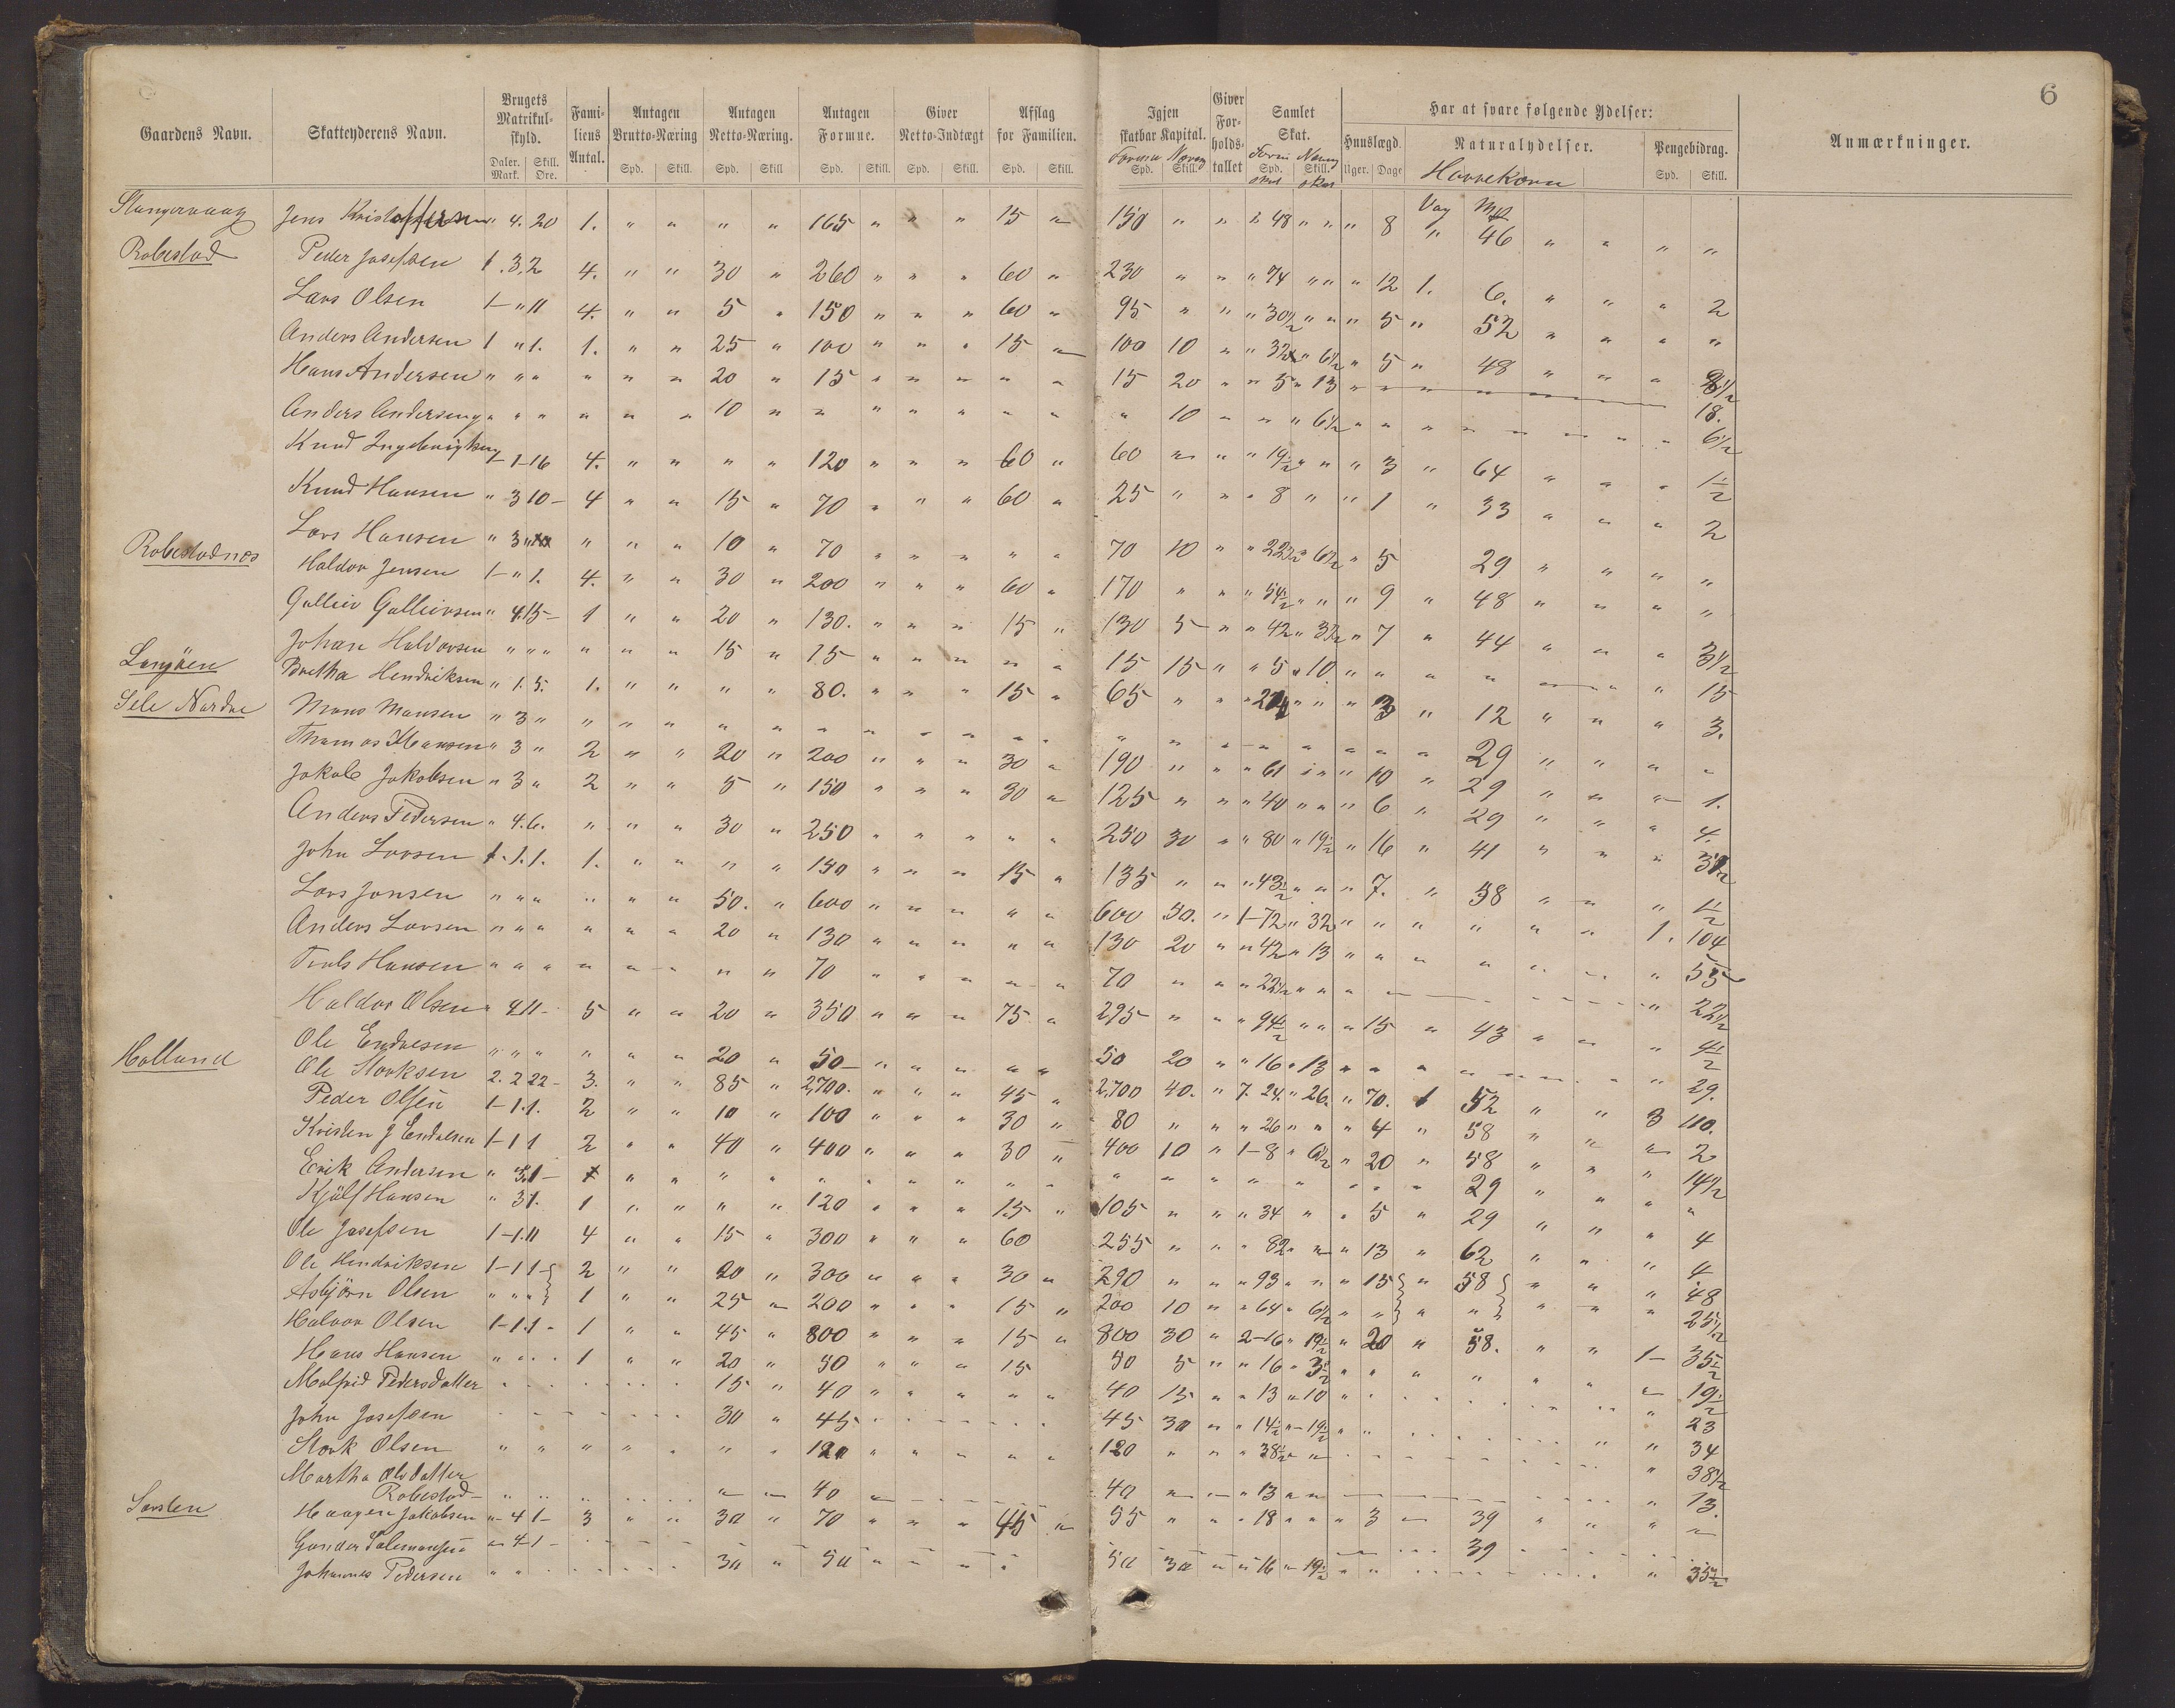 6
Gaardens Navn. Skatteyderens Navn. Brugets Matrikulskyld. Daler. Mark. Skill. Øre. Familiens Antal. Antagen Brutto-Næring Spd. Skill. Antagen Netto-Næring. Spd. Skill Antagen Formue. Spd. Skill. Giver Netto-Indtægt Spd. Skill. Afslag for Familien. Spd. Skill. Igjen skatbar Kapital. Formue Næring Spd. Skill. Giver Forholdstallet Samlet Skat. Spd. Skill. Har at svare følgende Ydelser: Huuslægdliger. Dage Naturalydelser. Havrekorn Pengebidrag. Spd. Skill. Anmærkninger.
Vog Mk
Stangervaag Jens Kristoffersen " 4. 20 1. " " " " 165 " " " 15 " 150 " " " 48 " " " 8 " 46 " " " "
Robestad Peder Josefsen 1. 3. 2 4. " " 30 " 260 " " " 60 " 230 " " " 74 " " " 12 1. 6. " " " 2
Lars Olsen 1 - " 11 4. " " 5 " 150 " " " 60 " 95 " " " 30 1/2 " " " 5 " 52 " " " "
Anders Andersen 1 " 1. 1. " " 25 " 100 " " " 15 " 100 10 " " 32 " 6 1/2 " 5 " 48 " " " 8 1/2
Hans Andersen " " " " " " 20 " 15 " " " " " 15 20 " " 5 " 13 " " " " " " " 18.
Anders Andersen " " " " " " 10 " " " " " " " " 10 " " " " 6 1/2 " " " " " " " 6 1/2
Knud " 1 - 16 4. " " " " 120 " " " 60 " 60 " " " 19 1/2 " " " 3 " 64 " " " 1 1/2
Knud Hansen " 3 10 - 4 " " 15 " 70 " " " 60 " 25 " " " 8 " " " 1 " 33 " " " 2
Lars Hansen " 3 " " " " 10 " 70 " " " " " 70 10 " " 22 1/2 " 6 1/2 " 5 29 " " " "
Robestadnes Haldor Jensen 1 - " 1. 4. " " 30 " 200 " " " 60 " 170 " " " 54 1/2 " " " 9 " 48 " " " "
Gulleiv Gulleivsen " 4. 15 - 1 " " 20 " 130. " " " 15 " 130 5 " " 42 " 3 1/2 " 7 " 44 " " " 3 1/2
Johan Haldorsen " " " " " " 15 " 15 " " " " " 15 15 " " 5 " 10 " " " " " " " 15
Langöen Bertha Hendriksen " 1. 5. 1. " " " " 80. " " " 15 " 65 " " " 21 " " " 3 " 12 " " " 3.
Sele Nordre Mons Monsen " 3 " " " " " " " " " " " " " " " " " " " " " " 29 " " " "
Thomas Hansen " 3 " 2 " " 20 " 200 " " " 30 " 190 " " " 61 " " " 10 " 29 " " " 1.
Jakob Jakobsen " 3 " 2 " " 5 " 150 " " " 30 " 125 " " " 40 " " " 6 " 29 " " " 4.
Anders Pedersen " 4. 6. " " " 30 " 250 " " " " " 250 30 " " 80 " 19 1/2 " 16 " 41 " " " 3 1/2
John Larsen 1. 1. 1. 1. " " " " 150 " " " 15 " 135 " " " 43 1/2 " " " 7. " 58 " " " 1 1/2
Lars Jonsen " " " " " " 50. " 600 " " " " " 600 50. " 1 - 72 " 32 " " " " " " 1. 104
Anders Larsen " " " " " " 20 " 130 " " " " " 130 20 " " 42 " 13 " " " " " " " 55
Truls Hansen " " " " " " " " 70 " " " " " 70 " " " 22 1/2 " " " " " " " " " 22 1/2
Haldor Olsen " 4 11 - 5 " " 20 " 350 " " " 75 " 295 " " " 94 1/2 " " " 15 " 43 " " " 4 1/2
Ole Endresen " " " " " " 20 " 50 " " " " " 50 20 " " 16 " 13 " " " " " " " 29.
Holland Ole Storksen 2. 2 22 - 3. " " 85 " 2,700. " " " 45 " 2,700 40. " 7. 24. " 26. " 70. 1 52 " " 3 110.
Peder Olsen 1 - 1. 1. 2 " " 10 " 100 " " " 30 " 80 " " " 26 " " " 4 " 58 " " " 2
Kristen J Endresen 1 - 1 1 2 " " 40 " 400 " " " 30 " 400 10 " 1 - 8 " 6 1/2 " 20 " 58 " " " 14 1/2
Erik Andersen " 3. 1 - " " " " " " " " " " " " " " " " " " " 29 " " " "
Kjölf Hansen " 3 1. 1 " " " " 120 " " " 15 " 105 " " " 34 " " " 5 " 29 " " " 4
Ole Josefsen 1 - 1. 11 4 " " 15 " 300 " " " 60 255 " " " 82 " " " 13 " 62 " " " 4
Ole Hendriksen 1 - 1 1 - 2 " " 20 " 300 " " " 30 " 290 " " " 93 " " " 15 " 58 " " " 48
Asbjörn Olsen " " " 1 " " 25 " 200 " " " 15 " 200 10 " " 64 " 6 1/2 " " " " " " " 25 1/2
Halvor Olsen 1 - 1. 1 - 1 " " 45 " 800 " " " 15 " 800 30 " 2 - 16 " 19 1/2 " 20 " 58. " " 1 - 35 1/2
Hans Hansen " " " 1 " " 20 " 50 " " " 15 50 5 " " 16 " 3 1/2 " " " " " " " 19 1/2
Malfrid Pedersdatter 15 " 40 " " " " " 40 15 " " 13 " 10 " " 23
John Josefsen 30 " 45 45 30 " " 14 1/2 " 19 1/2 " " " " 34
Stork Olsen " " " " " " " 120 " " " " " 120 " " " 38 1/2 " " " 38 1/2
Martha Olsdatter
Robestad " " " " " 40 " 40 " " " 13 " " " 13.
Sarsten Haagen Jakobsen " 4 1 - 3 " " 30 " 70 " " " 45 " 55 " " " 18 " " " 3 " 39 " " " "
Gunder " 4 1 - 39
Johannes Pedersen " " 30 " 50 " " " " 50 30 " " 16 " 19 1/2 " " " 35 1/2